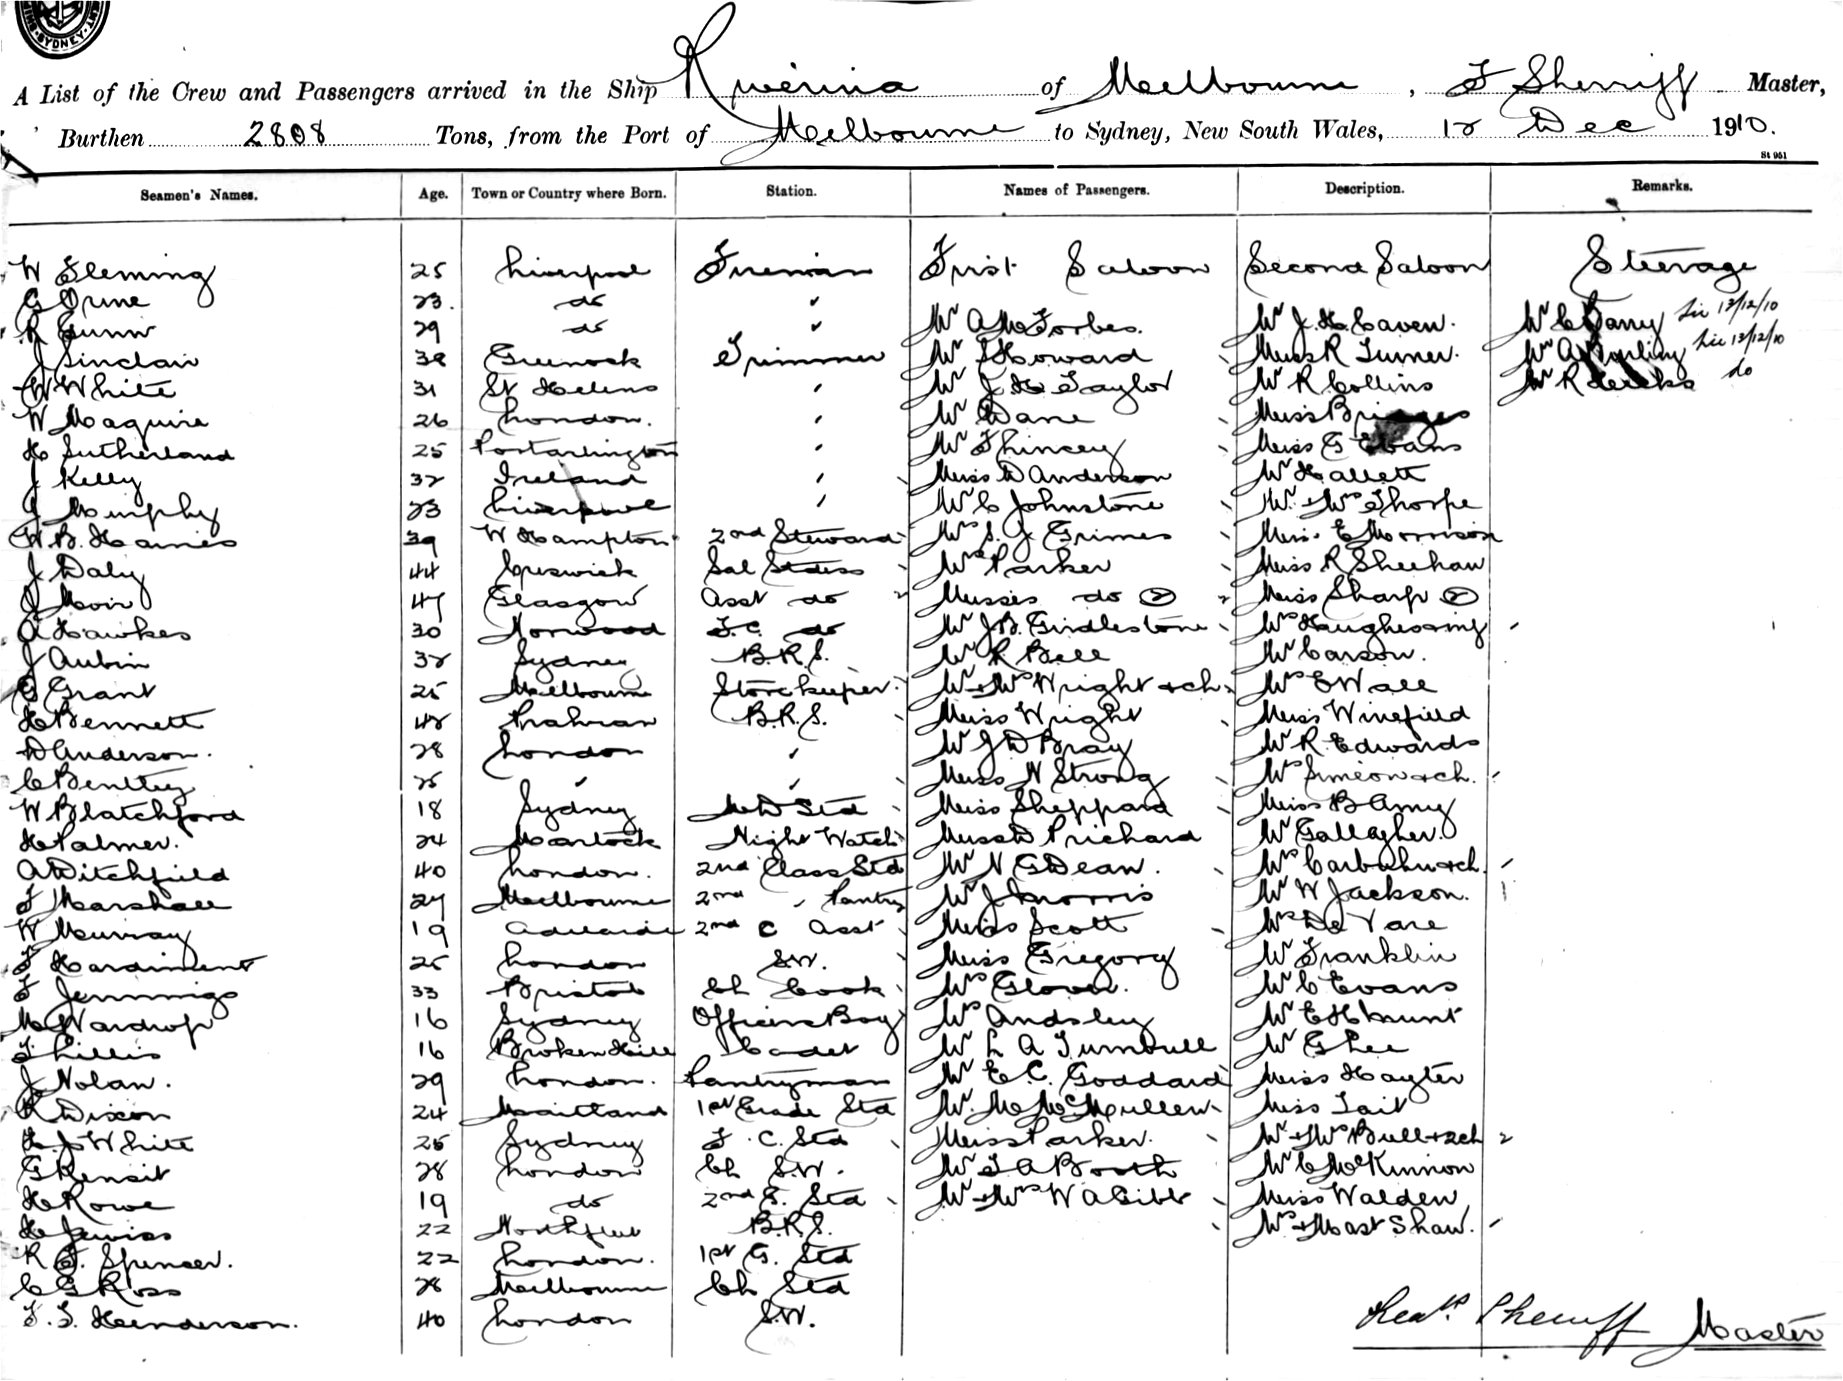 SYDNEY
A List of the Crew and Passengers arrived in the Ship Riverina of Melbourne, F Sherriff Master,
Burthen 2808 Tons, from the Port of Melbourne to Sydney, New South Wales, 12 Dec 1910.
St 951
Seamen's Names. Age. Town or Country where Born. Station. Names of Passengers. Description. Remarks.
W Fleming 25 Liverpool Fireman First Saloon Second Saloon Steerage
G Orme 23. do "
R Gunn 29 do " Mr A McForbes. Mr J.H. Caven. Mr C 12/12/10
J Sinclair 38 Greenock Trimmer Mr S Howard Miss R Turner. Mr A 12/12/10
W White 31 St Helens " Mr J. H. Taylor Mr R Collins Mr R do
W Maguire 26 London. " Mr Dane Miss Bridges
H Sutherland 25 Portarlington " Mr Miss G Evans
J Kelly 32 Ireland " Miss D Anderson Mr Hallett
J Murphy 23 Liverpool " Mr C Johnstone Mr + Mrs Thorpe
W. B. Haines 39 W Hampton 2nd Steward Mrs S. J. Grimes Miss E Morrison
J Daly 44 Creswick Sal Stdess Mrs Parker Miss R Sheehan
J Moir 47 Glasgow Asst do Misses do (2) Miss Sharp (2)
A Hawkes 30 Norwood F.C. do Mr J.B. Girdlestone Mrs
J Aubin 32 Sydney B.R.S. Mr R Bell Mr Carson.
G Grant 25 Melbourne Storekeeper. Mr + Mrs Wright + ch. Mrs E Wall
H Bennett 42 Prahran B.R.S. Miss Wright Miss Winefield
D Anderson. 28 London " Mr J D Bray Mr R. Edwards
C Bentley 25 " " Miss N Strong Mrs Simeon + ch.
W Blatchford 18 Sydney Std Miss Sheppard Miss B Amy
H Palmer. 24 Martock Night Watch Miss D Prichard Mr Gallagher.
A Ditchfield 40 London. 2nd Class Std Mr N G Dean. Mrs + ch.
F Marshall 27 Melbourne 2nd " Pantry Mr J Morris Mr W Jackson.
W Murray 19 Adelaide 2nd C Asst Miss Scott Mrs De Vare
F Hardiment 25 London S.W. Miss Gregory Mr Franklin
F Jennings 33 Bristol Ch Cook Mrs Glover. Mr C Evans
M Wardrop 16 Sydney Officers Boy Mrs Andsley Mr E Hunt
F Lillis 16 Broken Hill Cadet Mr L A Turnbull Mr G Lee
J Nolan. 29 London. Pantryman Mr E.C. Goddard Miss Hayter
R Dixon 24 Maitland 1st Grade Std Mr. M McMullen Miss Tait
H. J. White 25 Sydney F.C. Std Miss Parker. Mr + Mrs Bull + 2 ch
G Kensit 28 London Ch S.W. Mr T A Booth Mr C McKinnon
H Rowe 19 do 2nd G. Std Mr + Mrs W A Gibb Miss Walden
H Jewiss 22 Northfleet B.R.S. Mrs + Mast Shaw.
R J. Spencer. 22 London. 1st G. Std
C G Ross 28 Melbourne Ch Std
F. J. Henderson. 40 London S.W.
Sherriff Master